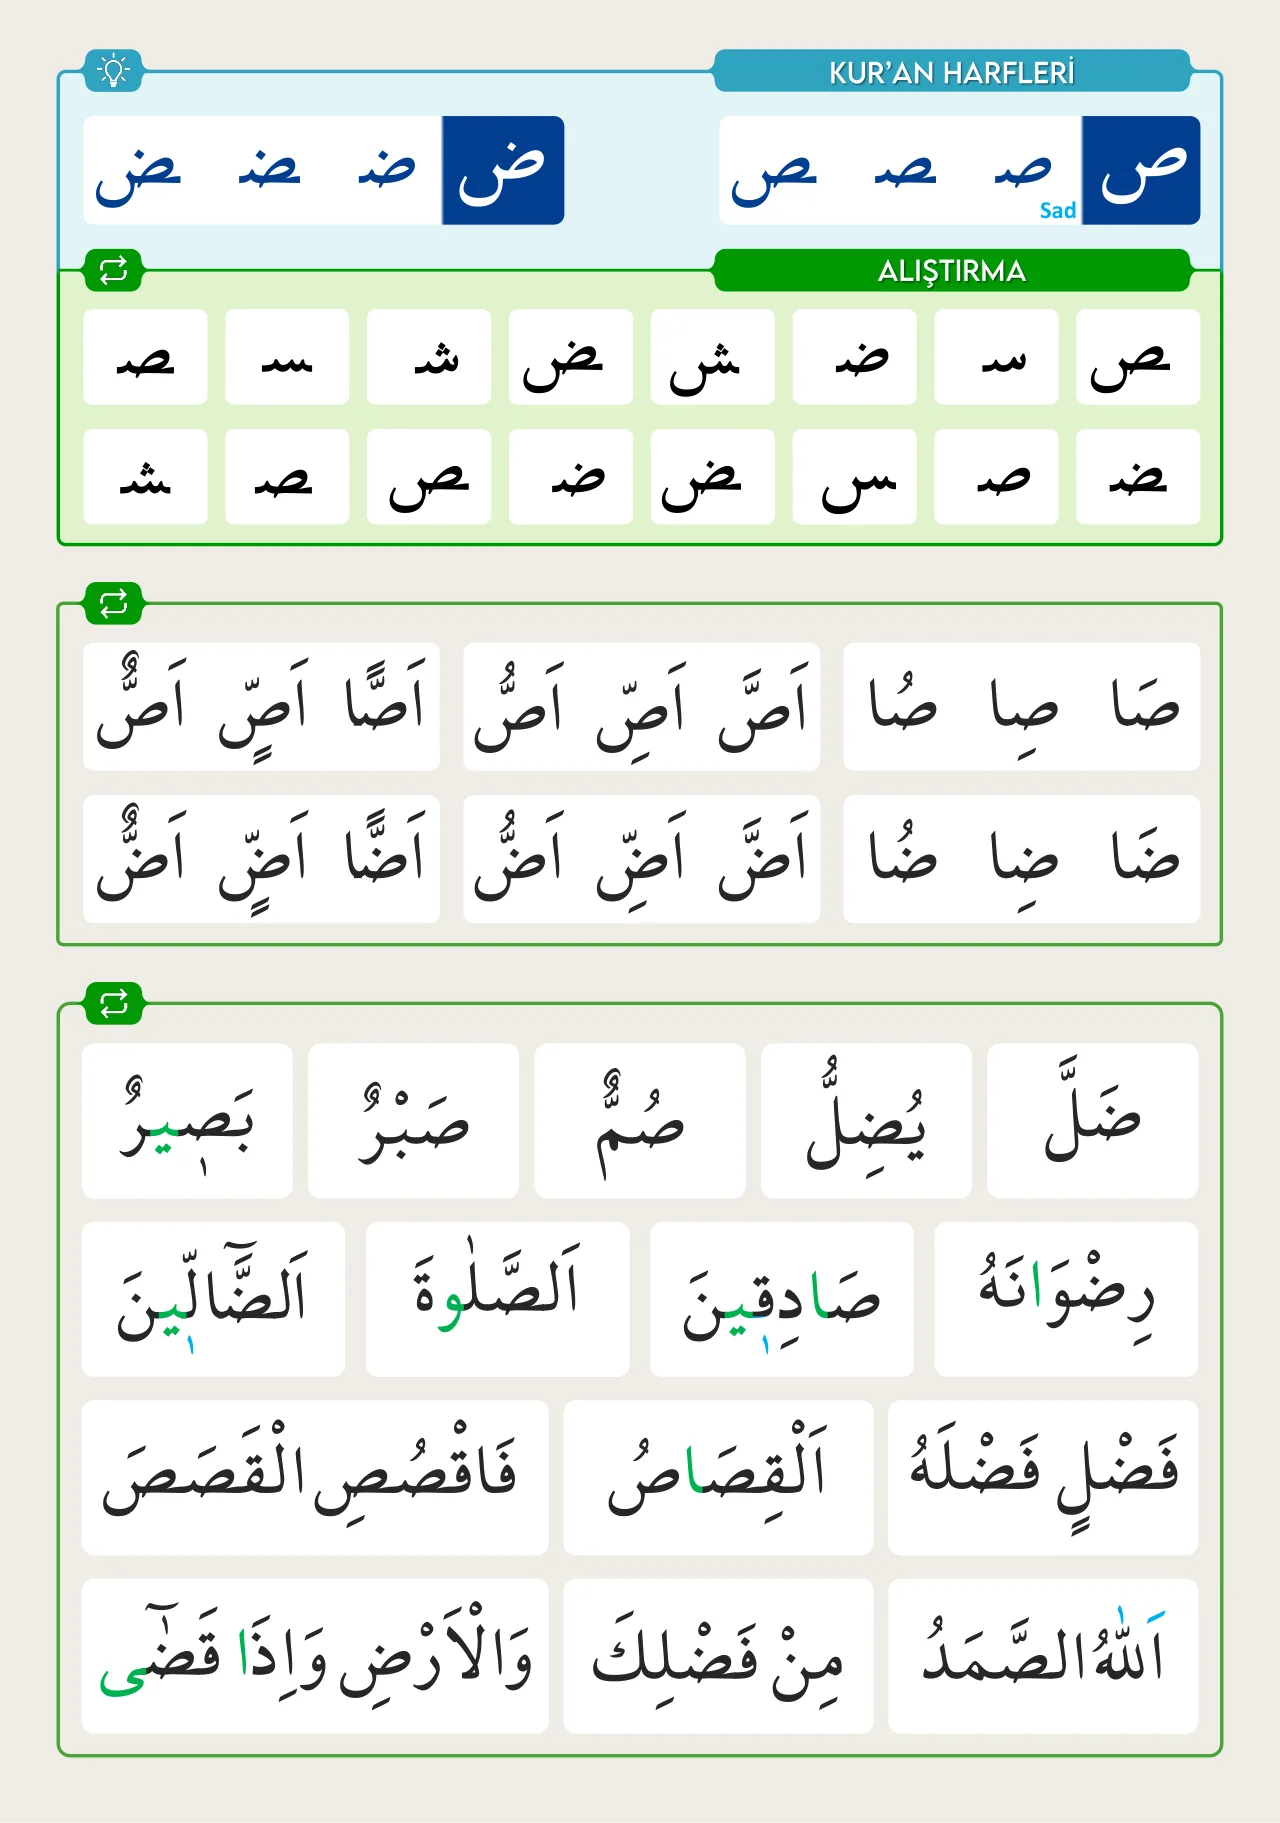 KUR’AN HARFLERİ
ص صـ ـصـ ـص ض ضـ ـضـ ـض
Sad
ALIŞTIRMA
ـص سـ ضـ ـش ـض شـ ـسـ ـصـ
ـضـ صـ ـس ـض ضـ ـص ـصـ ـشـ
صَا صِا صُا اَصَّ اَصِّ اَصُّ اَصًّا اَصٍّ اَصٌّ
ضَا ضِا ضُا اَضَّ اَضِّ اَضُّ اَضًّا اَضٍّ اَضٌّ
ضَلَّ يُضِلُّ صُمٌّ صَبْرٌ بَصٖيرٌ
رِضْوَانَهُ صَادِقٖينَ اَلصَّلٰوةَ اَلضَّٓالّٖينَ
فَضْلٍ فَضْلَهُ اَلْقِصَاصُ فَاقْصُصِ الْقَصَصَ
اَللّٰهُ الصَّمَدُ مِنْ فَضْلِكَ وَالْاَرْضِ وَاِذَا قَضٰٓى